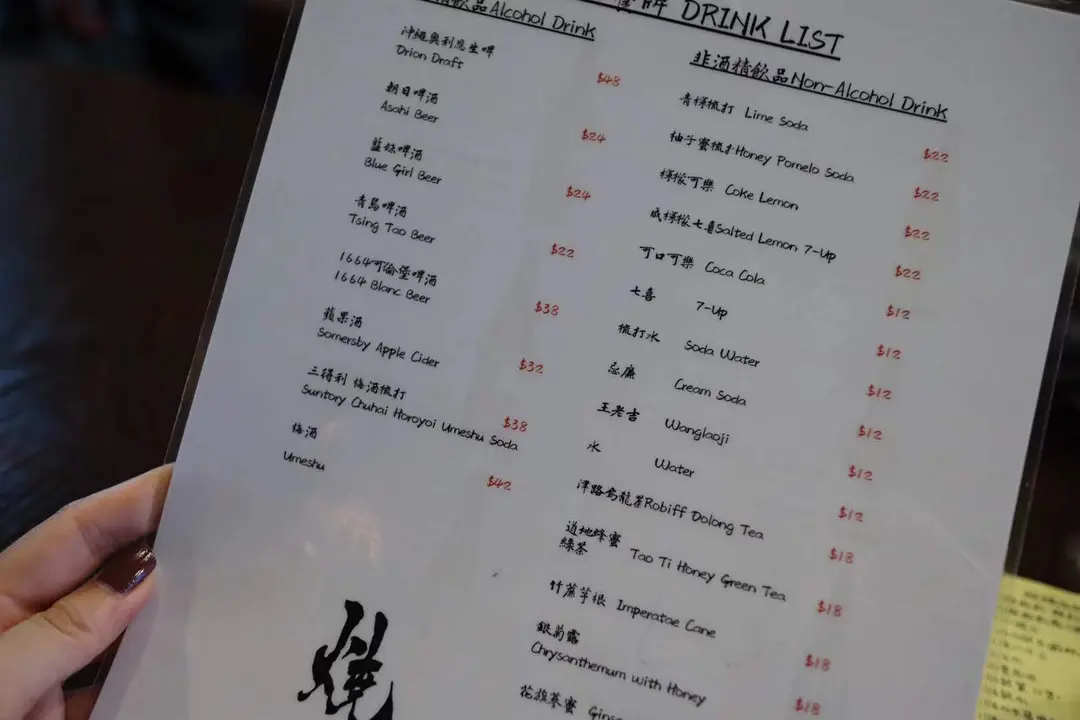 DRINK LIST
精飲品Alcohol Drink
沖繩奧利恩生啤
Orion Draft
$48
朝日啤酒
Asahi Beer
$24
藍妹啤酒
Blue Girl Beer
$24
青島啤酒
Tsing Tao Beer
$22
1664可倫堡啤酒
1664 Blanc Beer
$38
蘋果酒
Somersby Apple Cider
$32
三得利 梅酒梳打
Suntory Chuhai Horoyoi Umeshu Soda
$38
梅酒
Umeshu
$42
非酒精飲品Non-Alcohol Drink
青檸梳打 Lime Soda
$22
柚子蜜梳打Honey Pomelo Soda
$22
檸檬可樂 Coke Lemon
$22
咸檸檬七喜Salted Lemon 7-Up
$22
可口可樂 Coca Cola
$12
七喜 7-Up
$12
梳打水 Soda Water
$12
忌廉 Cream Soda
$12
王老吉 Wanglaoji
$12
水 Water
$12
津路烏龍茶Robiff Oolong Tea
$18
道地蜂蜜
綠茶 Tao Ti Honey Green Tea
$18
竹蔗芋根 Imperatae Cane
$18
銀菊露
Chrysanthemum with Honey
$18
花旗蔘蜜